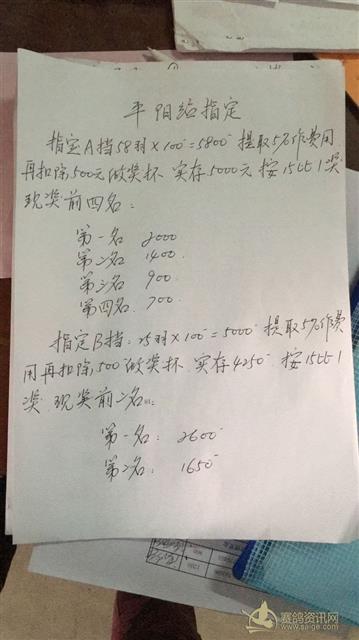 平阳站指定
指定A挡58羽×100=5800 提取5%作费用
再扣除500元做奖杯 实存5000元 按15比1奖
现奖前四名:
第一名 2000
第二名 1400
第三名 900
第四名 700
指定B挡: 25羽×100=5000 提取5%作费
用再扣除500做奖杯 实存4250 按15比1
奖 现奖前二名:
第一名: 2600
第2名: 1650
赛鸽资讯网
www.sai-ge.com